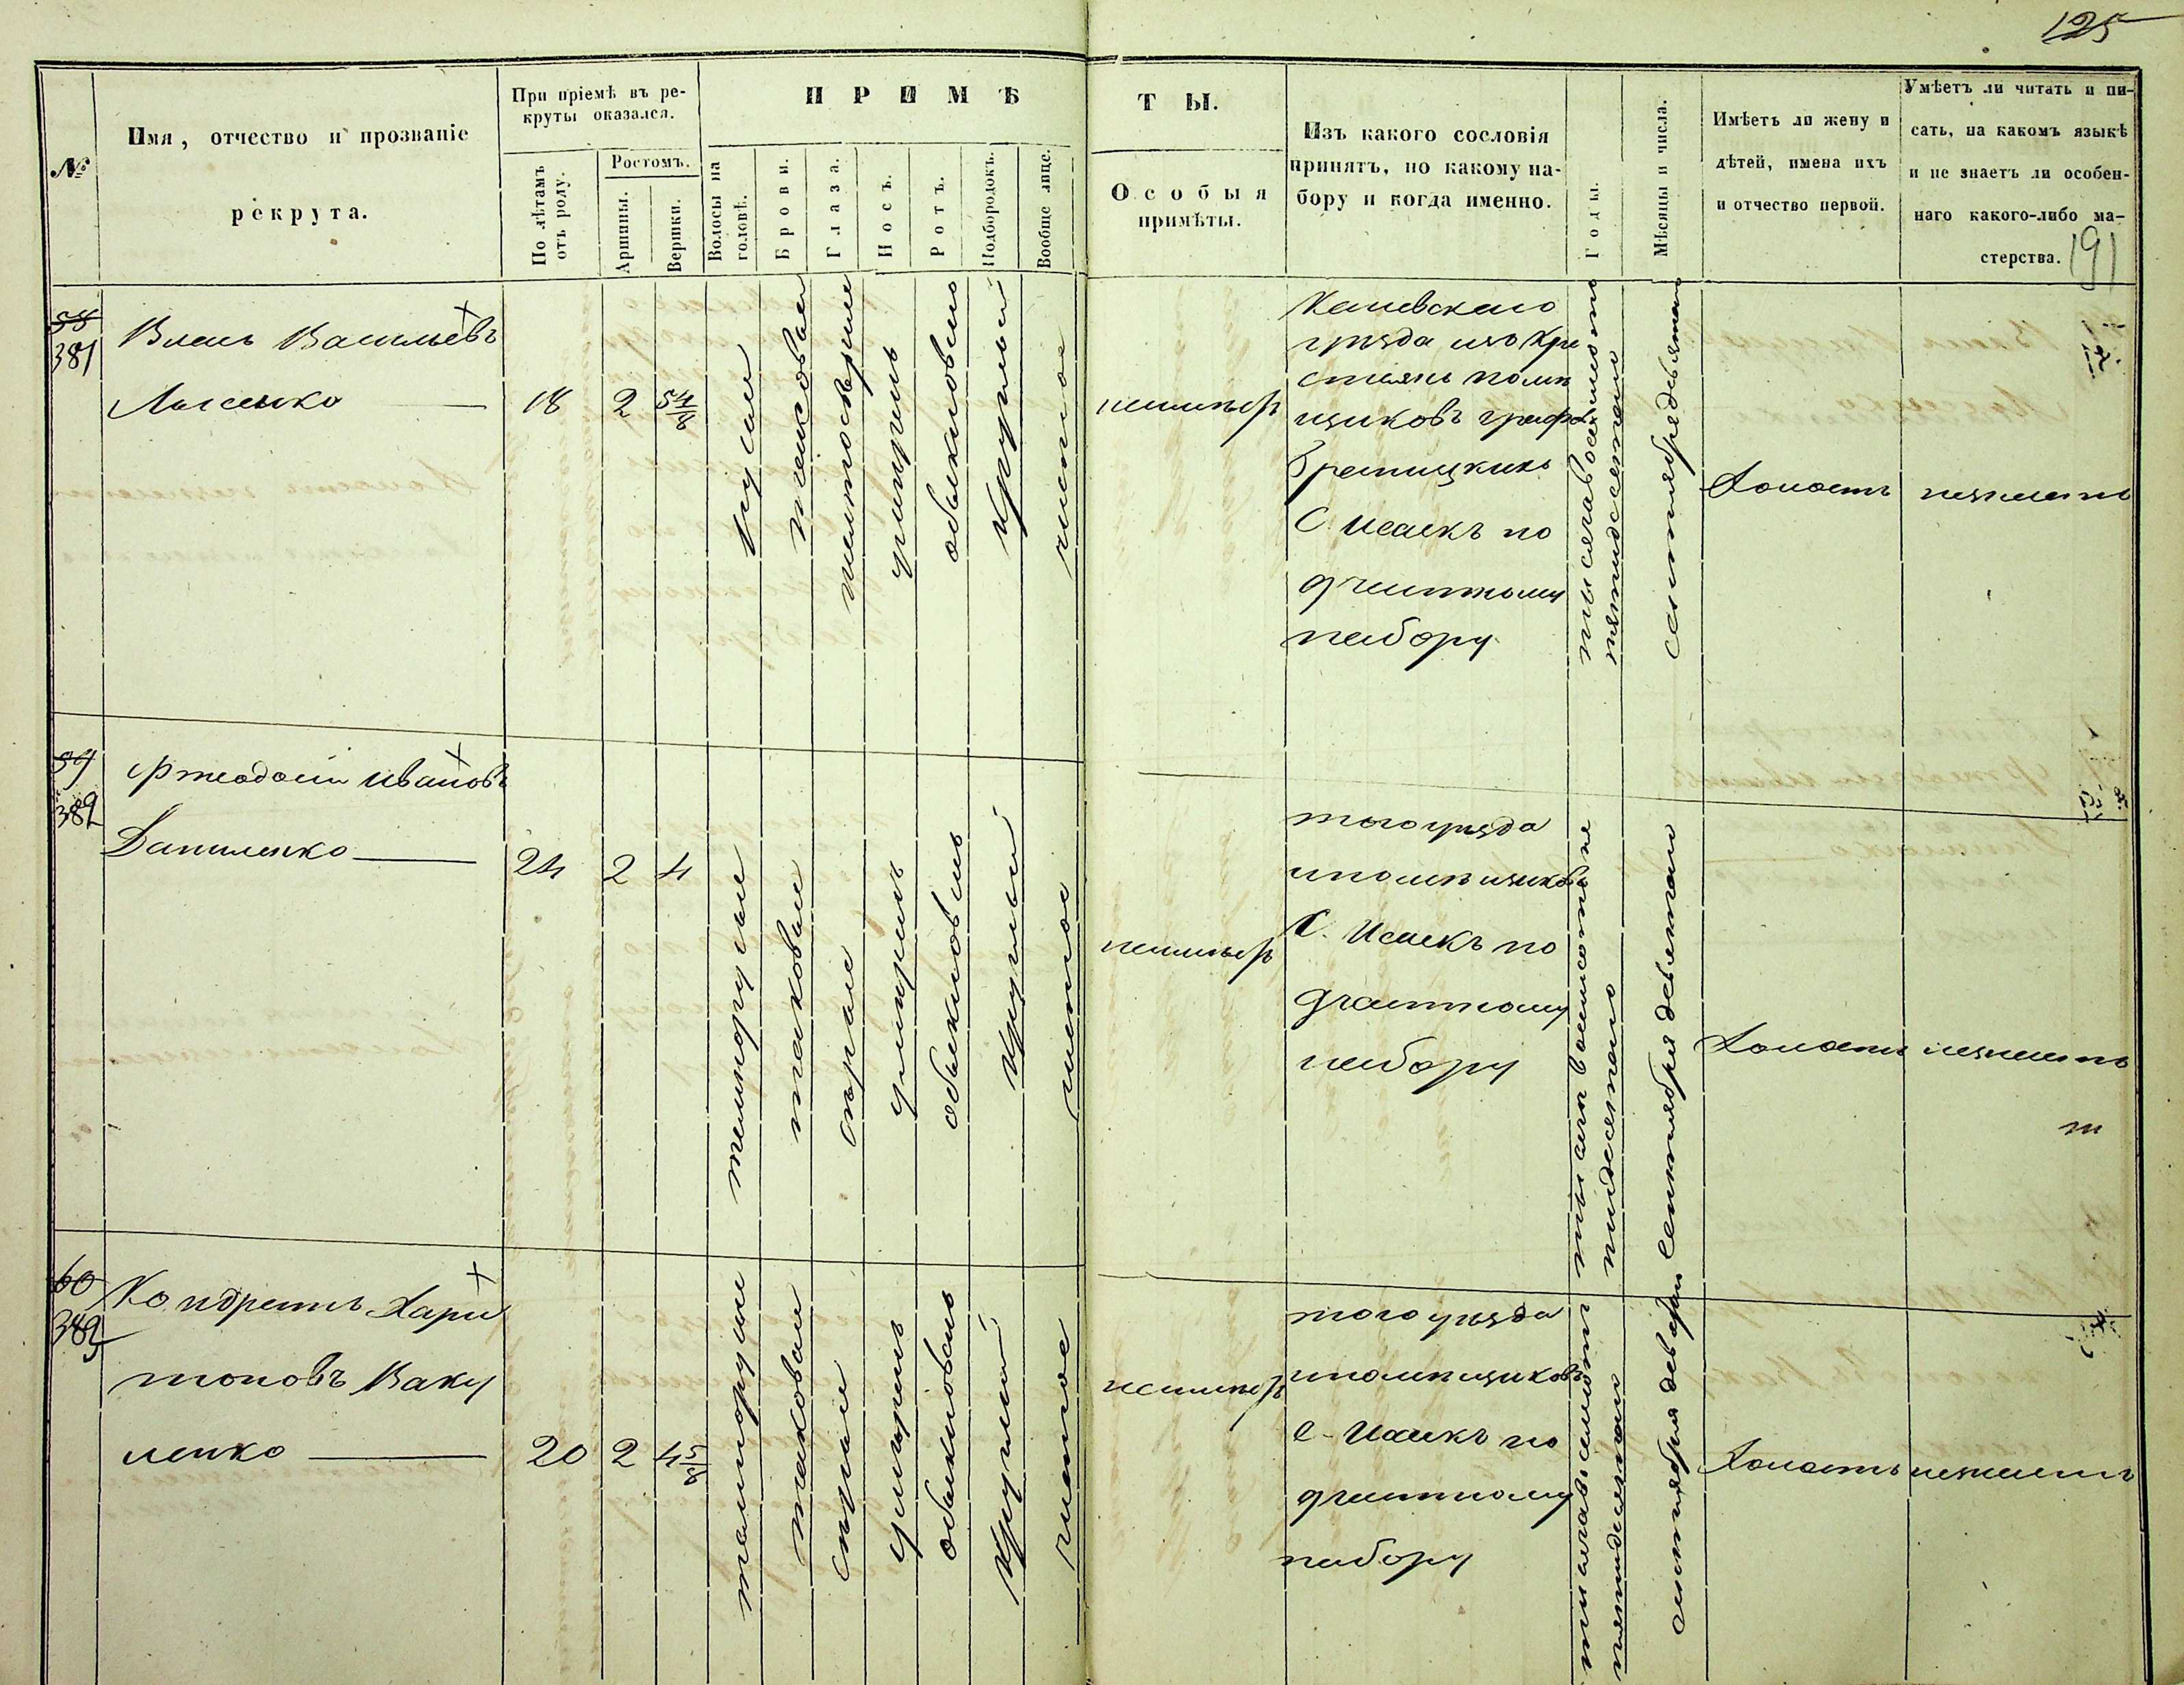 125
№
Имя, отчество и прозваніе
рекрута.
При пріемѣ въ ре-
круты оказался.
По лѣтамъ
отъ роду.
Ростомъ.
Аршины.
Вершки.
ПРИМѢ
ТЫ.
Волосы на
головѣ.
Брови.
Глаза.
Носъ.
Ротъ.
Подбородокъ.
Вообще лице.
Особыя
примѣты.
Изъ какого сословія
принятъ, по какому на-
бору и когда именно.
Годы.
Мѣсяцы и числа.
Имѣетъ ли жену и
дѣтей, имена ихъ
и отчество первой.
Умѣетъ ли читать и пи-
сать, на какомъ языкѣ
и не знаетъ ли особен-
наго какого-либо ма-
стерства.
191
58
381
Власъ Васильевъ
Лысенко
18
2
5 4/8
русые
таковые
свѣтлосѣрые
умѣренъ
обыкновенъ
круглый
чистое
неимѣетъ
Каневскаго
уѣзда изъ кре
стьянъ помѣ
щиковъ графовъ
Браницкихъ
С. Исаекъ по
частному
набору
тысяча восемьсотъ
пятидесятаго
сентября девятаго
Холостъ
незнаетъ
59
382
Ѳеодосій Ивановъ
Даниленко
24
2
4
темнорусые
таковые
сѣрые
умѣренъ
обыкновенъ
круглый
чистое
неимѣетъ
того уѣзда
и помѣщиковъ
С. Исаекъ по
частному
набору
тысяча восемьсотъ
пятидесятаго
Сентября девятаго
Холостъ
незнаетъ
60
383
Кондратъ Хари
тоновъ Баку
ленко
20
2
4 5/8
темнорусые
таковые
сѣрые
умѣренъ
обыкновенъ
круглый
чистое
неимѣетъ
того уѣзда
и помѣщиковъ
С. Исаекъ по
частному
набору
пятидесятаго
сентября
Холостъ
незнаетъ